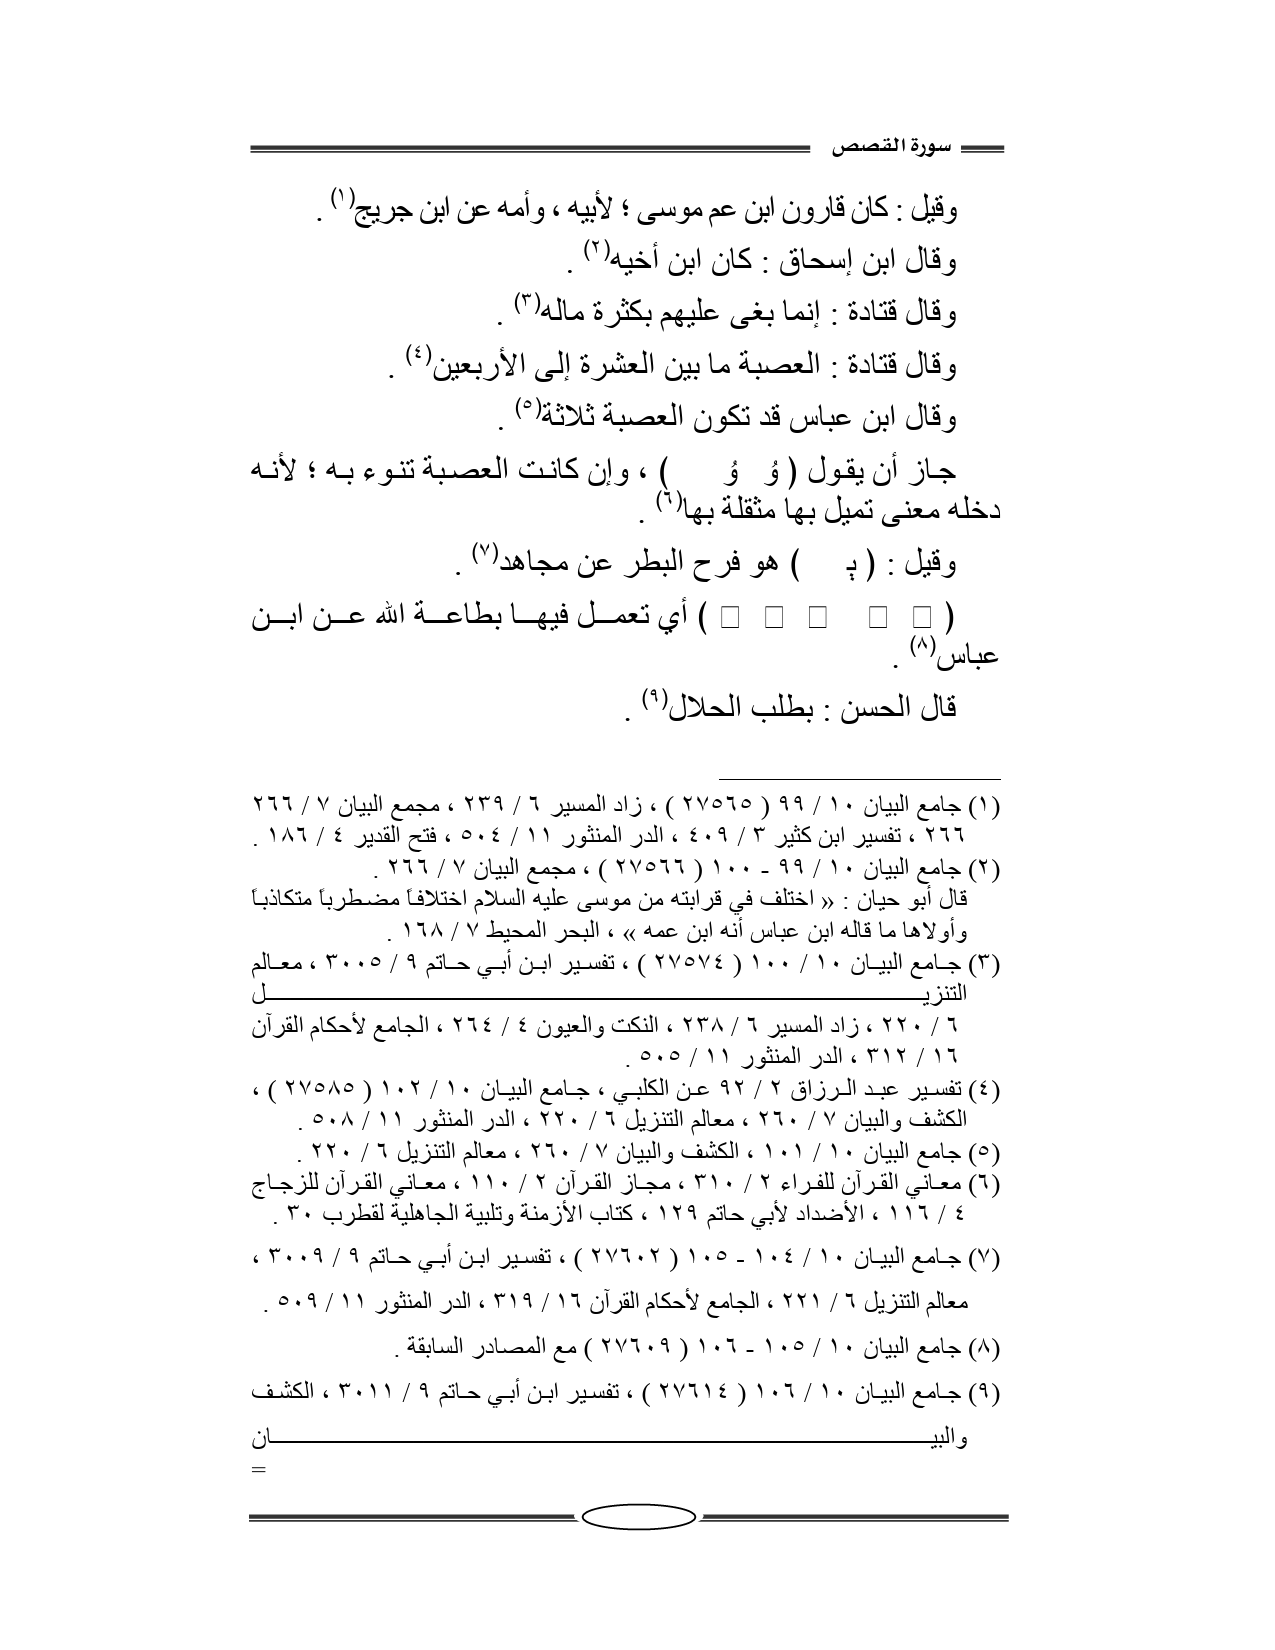 سورة القصص
وقيل : كان قارون ابن عم موسى ؛ لأبيه ، وأمه عن ابن جريج(١) .
وقال ابن إسحاق : كان ابن أخيه(٢) .
وقال قتادة : إنما بغى عليهم بكثرة ماله(٣) .
وقال قتادة : العصبة ما بين العشرة إلى الأربعين(٤) .
وقال ابن عباس قد تكون العصبة ثلاثة(٥) .
جاز أن يقول ( ) ، وإن كانت العصبة تنوء به ؛ لأنه
دخله معنى تميل بها مثقلة بها(٦) .
وقيل : ( ) هو فرح البطر عن مجاهد(٧) .
( ) أي تعمل فيها بطاعة الله عن ابن
عباس(٨) .
قال الحسن : بطلب الحلال(٩) .
(١) جامع البيان ١٠ / ٩٩ ( ٢٧٥٦٥ ) ، زاد المسير ٦ / ٢٣٩ ، مجمع البيان ٧ / ٢٦٦
٢٦٦ ، تفسير ابن كثير ٣ / ٤٠٩ ، الدر المنثور ١١ / ٥٠٤ ، فتح القدير ٤ / ١٨٦ .
(٢) جامع البيان ١٠ / ٩٩ - ١٠٠ ( ٢٧٥٦٦ ) ، مجمع البيان ٧ / ٢٦٦ .
قال أبو حيان : « اختلف في قرابته من موسى عليه السلام اختلافاً مضطرباً متكاذباً
وأولاها ما قاله ابن عباس أنه ابن عمه » ، البحر المحيط ٧ / ١٦٨ .
(٣) جامع البيان ١٠ / ١٠٠ ( ٢٧٥٧٤ ) ، تفسير ابن أبي حاتم ٩ / ٣٠٠٥ ، معالم
التنزيل
٦ / ٢٢٠ ، زاد المسير ٦ / ٢٣٨ ، النكت والعيون ٤ / ٢٦٤ ، الجامع لأحكام القرآن
١٦ / ٣١٢ ، الدر المنثور ١١ / ٥٠٥ .
(٤) تفسير عبد الرزاق ٢ / ٩٢ عن الكلبي ، جامع البيان ١٠ / ١٠٢ ( ٢٧٥٨٥ ) ،
الكشف والبيان ٧ / ٢٦٠ ، معالم التنزيل ٦ / ٢٢٠ ، الدر المنثور ١١ / ٥٠٨ .
(٥) جامع البيان ١٠ / ١٠١ ، الكشف والبيان ٧ / ٢٦٠ ، معالم التنزيل ٦ / ٢٢٠ .
(٦) معاني القرآن للفراء ٢ / ٣١٠ ، مجاز القرآن ٢ / ١١٠ ، معاني القرآن للزجاج
٤ / ١١٦ ، الأضداد لأبي حاتم ١٢٩ ، كتاب الأزمنة وتلبية الجاهلية لقطرب ٣٠ .
(٧) جامع البيان ١٠ / ١٠٤ - ١٠٥ ( ٢٧٦٠٢ ) ، تفسير ابن أبي حاتم ٩ / ٣٠٠٩ ،
معالم التنزيل ٦ / ٢٢١ ، الجامع لأحكام القرآن ١٦ / ٣١٩ ، الدر المنثور ١١ / ٥٠٩ .
(٨) جامع البيان ١٠ / ١٠٥ - ١٠٦ ( ٢٧٦٠٩ ) مع المصادر السابقة .
(٩) جامع البيان ١٠ / ١٠٦ ( ٢٧٦١٤ ) ، تفسير ابن أبي حاتم ٩ / ٣٠١١ ، الكشف
والبيان
=